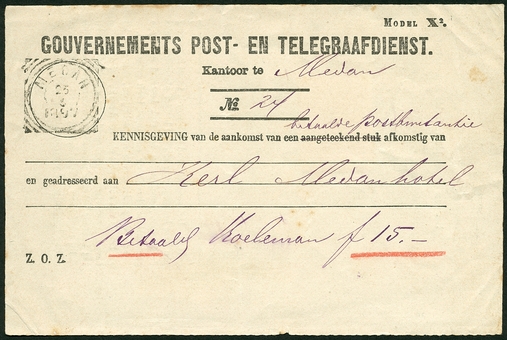 MODEL X².
GOUVERNEMENTS POST- EN TELEGRAAFDIENST.
Kantoor te Medan
MEDAN
23
1897
№ 24
betaalde postkwitantie
KENNISGEVING van de aankomst van een aangeteekend stuk afkomstig van
en geadresseerd aan Kerl Medanhotel
Betaald Koeleman f 15.-
Z. O. Z.